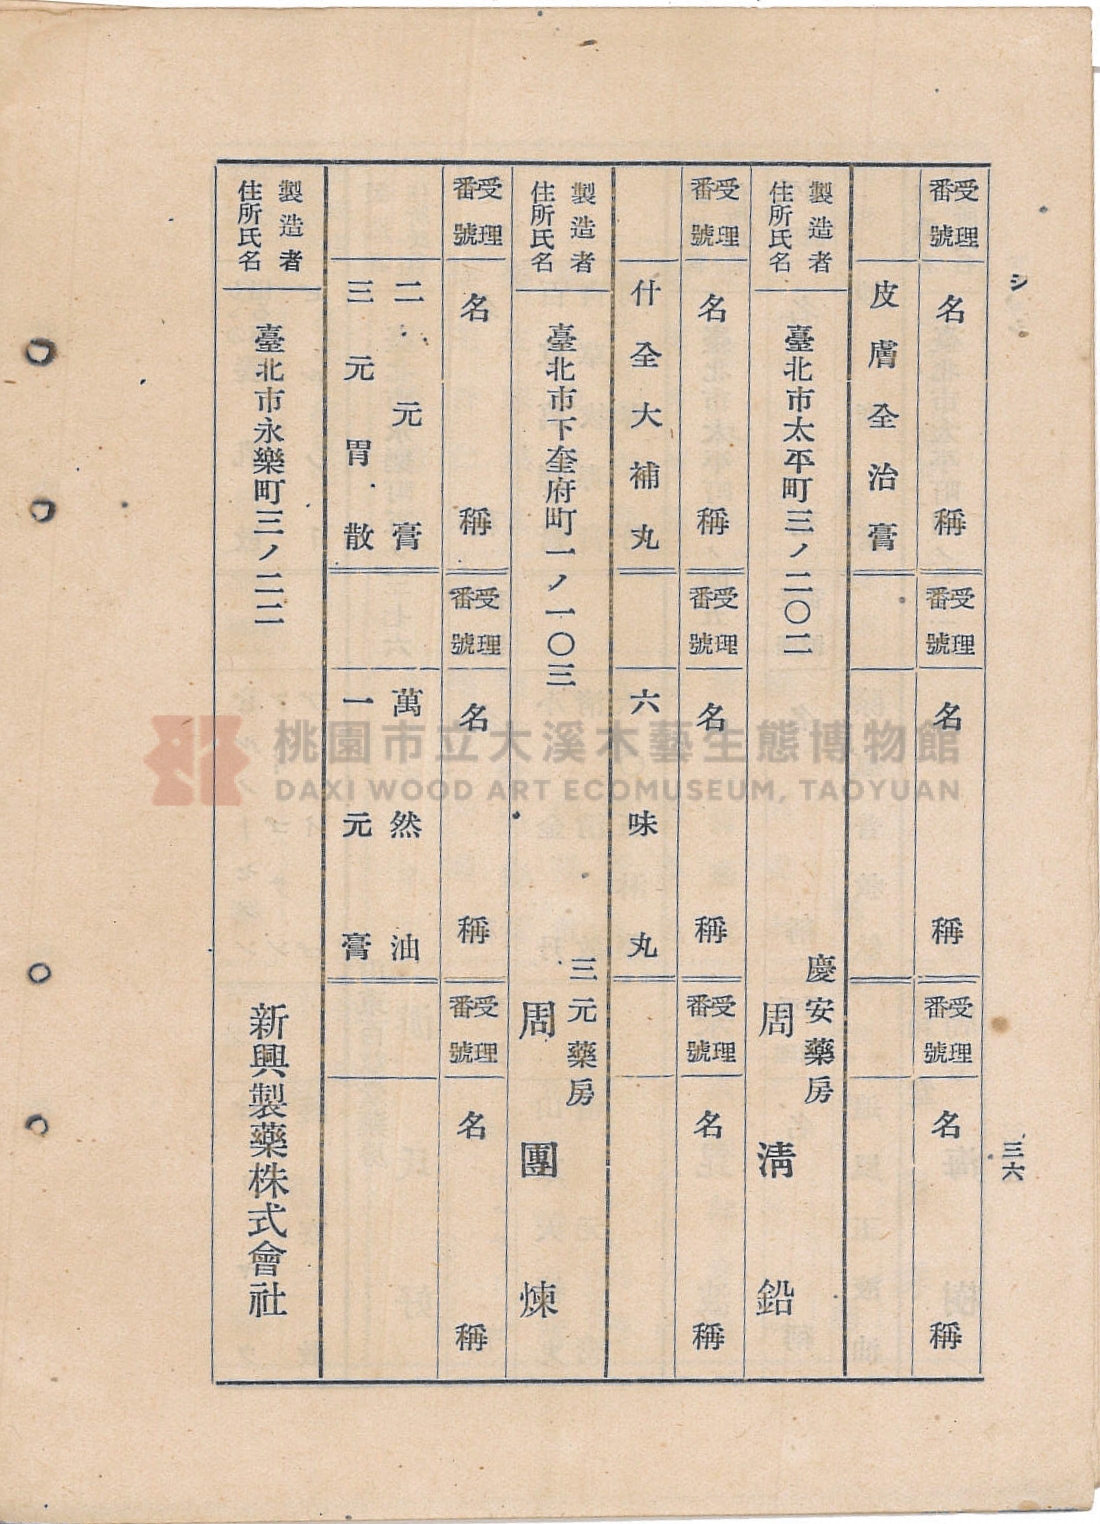 シ
三六
受理番號
名稱
受理番號
名稱
受理番號
名稱
皮膚全治膏
製造者住所氏名
臺北市太平町三ノ二〇二
慶安藥房
周清鉛
受理番號
名稱
受理番號
名稱
受理番號
名稱
什全大補丸
六味丸
製造者住所氏名
臺北市下奎府町一ノ一〇三
三元藥房
周團煉
受理番號
名稱
受理番號
名稱
受理番號
名稱
二元膏
萬然油
三元胃散
一元膏
製造者住所氏名
臺北市永樂町三ノ二二
新興製藥株式會社
桃園市立大溪木藝生態博物館
DAXI WOOD ART ECOMUSEUM, TAOYUAN